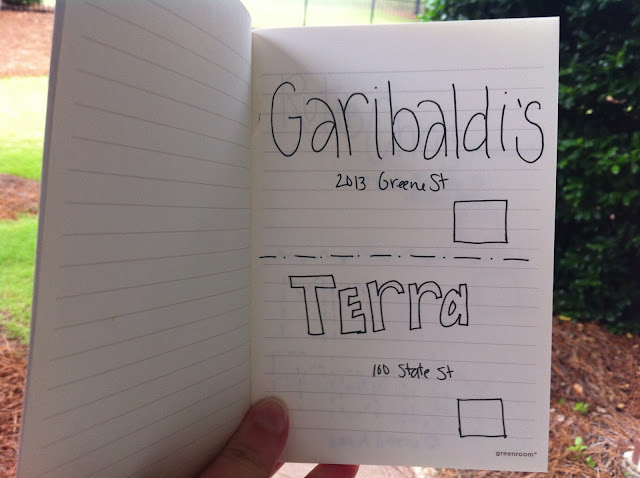 Garibaldi's
2013 Greene St
Terra
100 State St
greenroom